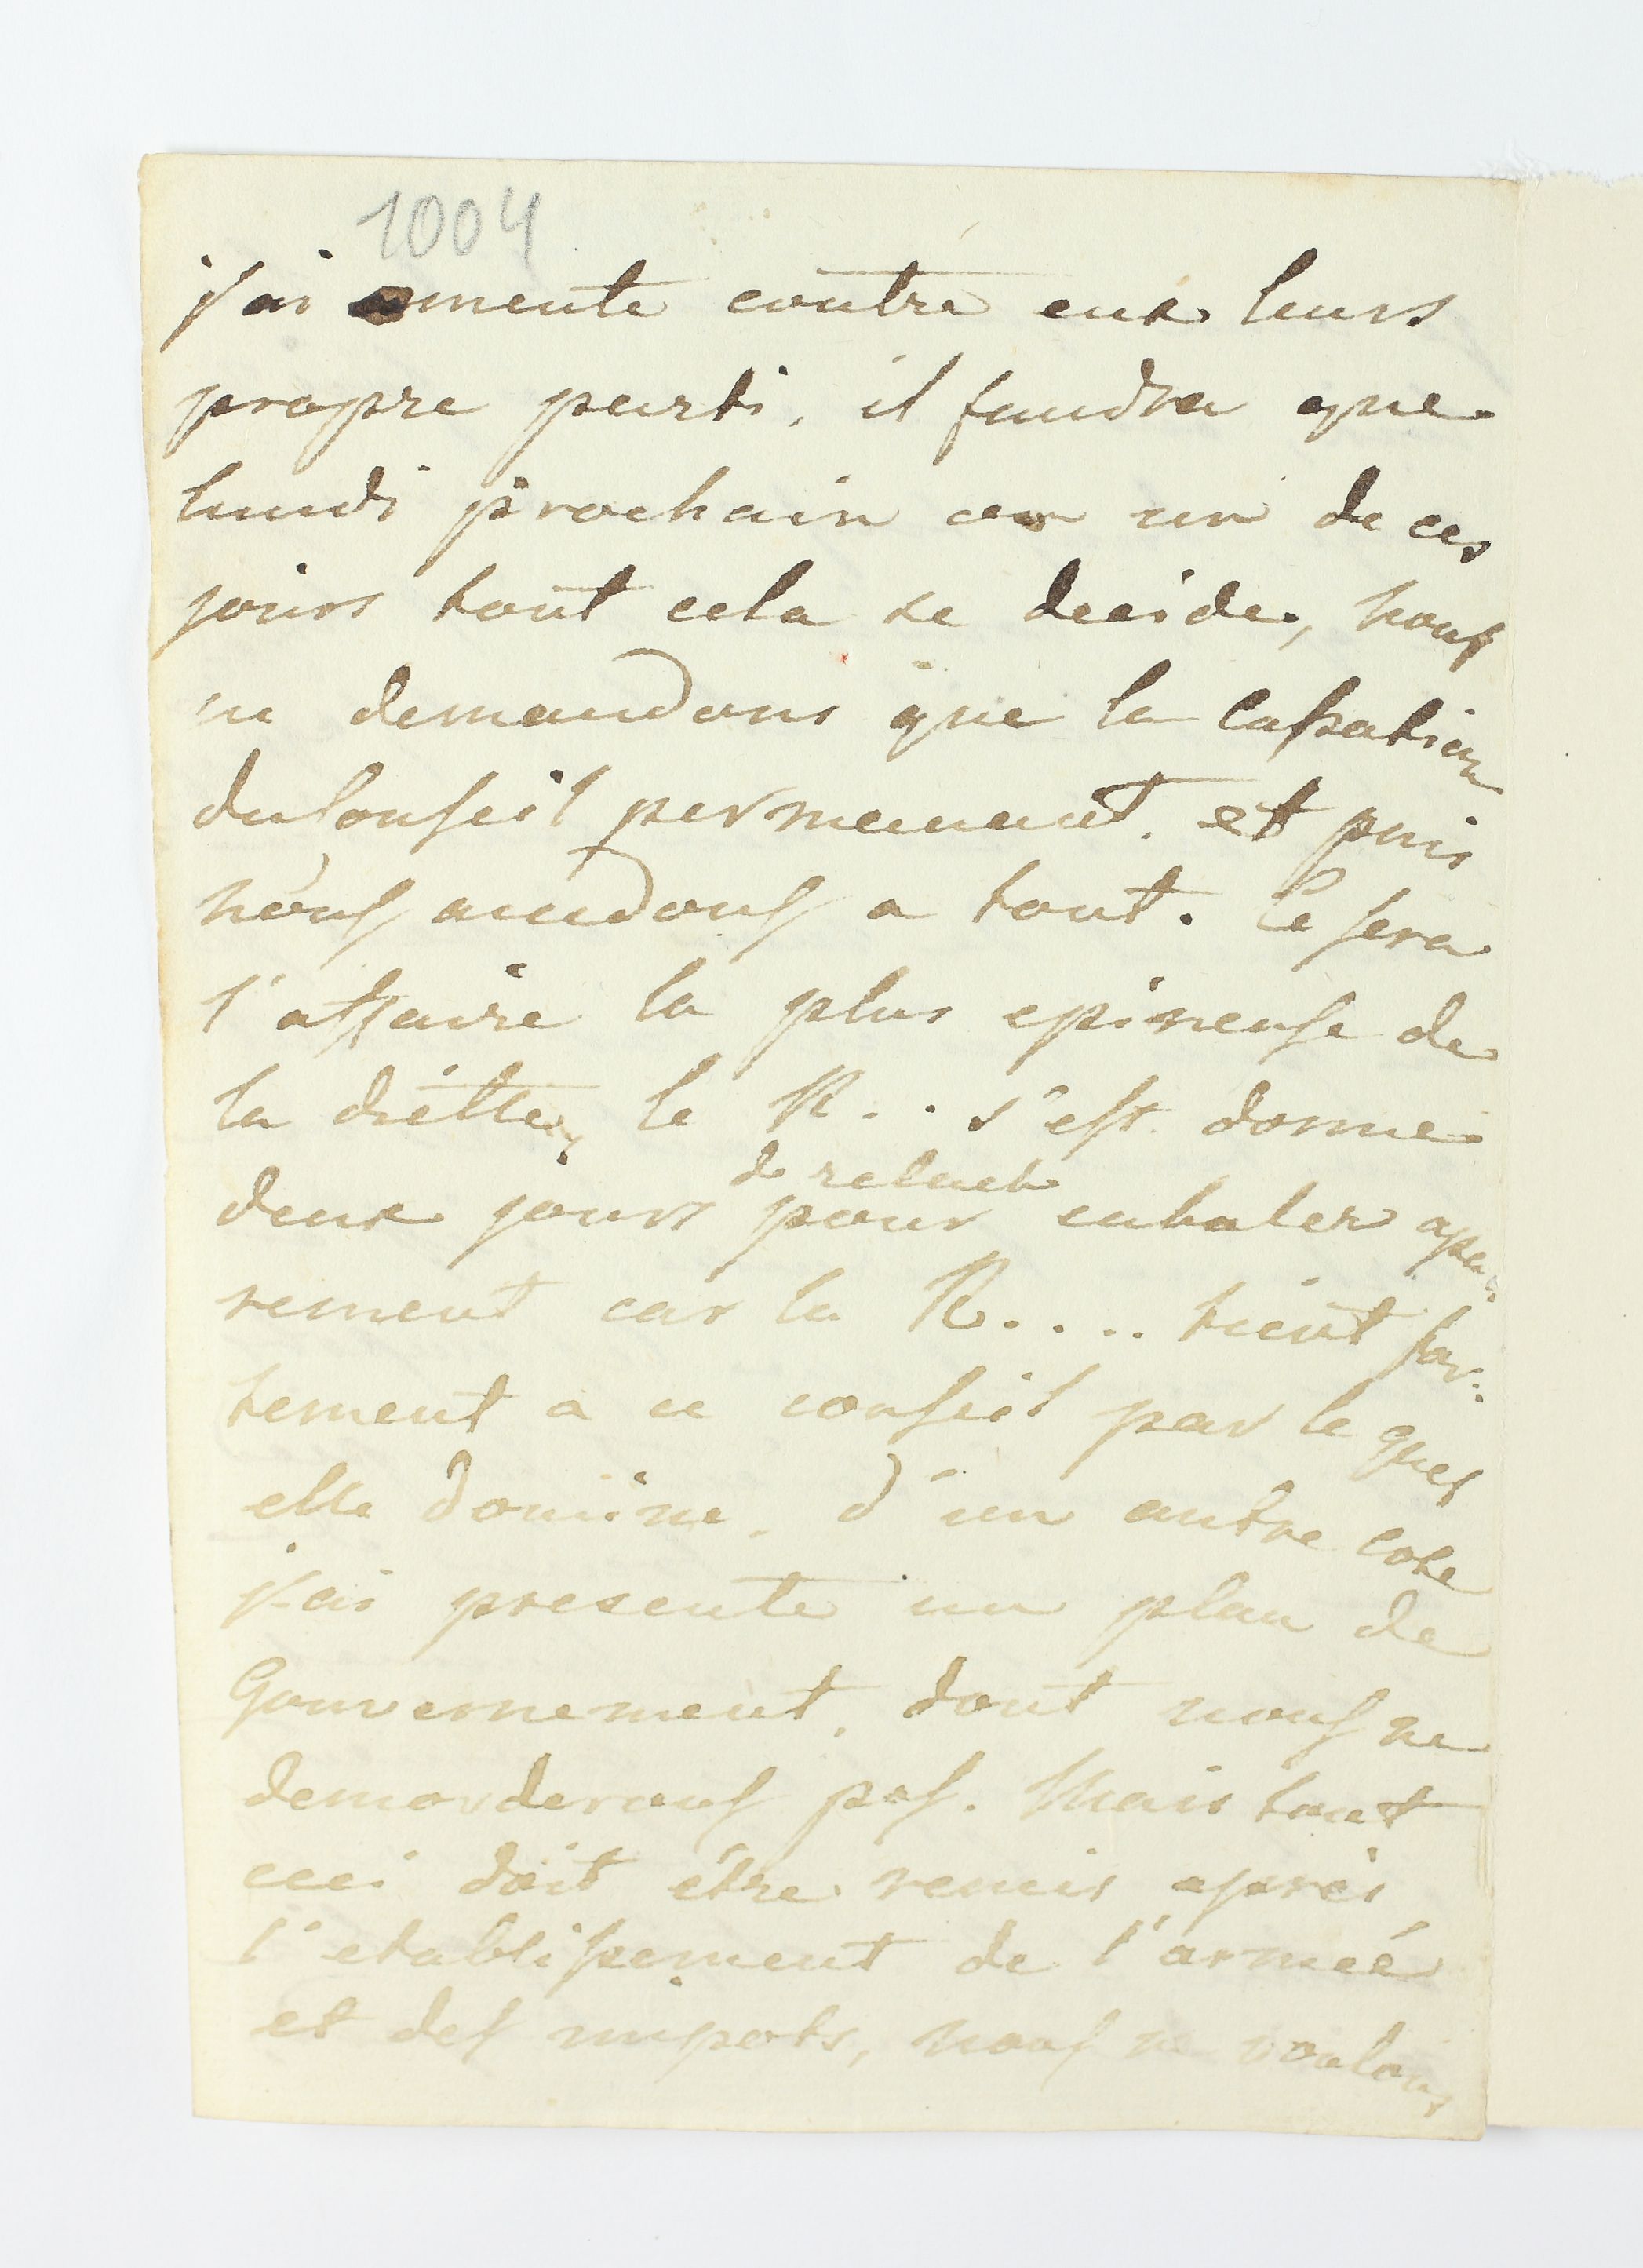 1004
j'ai amenté contre eux leurs
propre parti, il faudra que
lundi prochain ou un de ces
jours tout cela se decide, nous
ne demandons que la cassation
du Conseil permanent. et puis
nous accedons a tout. Ce sera
l'affaire la plus epineuse de
la diètte, le R.. s'est donne
de relache
deux jours pour cabaler apa:
rement car la R.... tient for:
tement a ce conseil par le quel
elle domine. d'un autre cote
j'ai presenté un plan de
Gouvernement, dont nous ne
demorderons pas. Mais tout
ceci doit être remis après
l'etablissement de l'armeé
et des impots, nous ne voulons